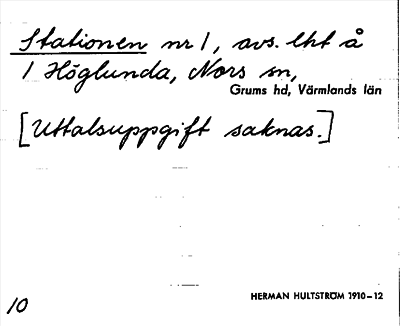 Stationen nr 1, avs. lht å
1 Höglunda, Nors sn,
Grums hd, Värmlands län
[Uttalsuppgift saknas.]
HERMAN HULTSTRÖM 1910–12
10